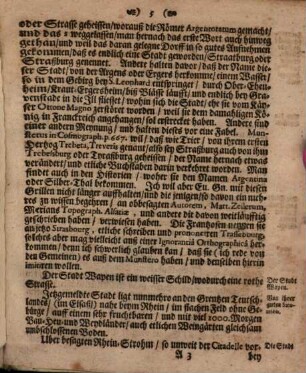 5
oder Strasse geheissen/woraus die Römer Argentoratum gemacht/
und das s weggelassen/man hernach das erste Wort auch hinweg
gethan/und weil das daran gelegne Dorff in so gutes Aufnehmen
gekommen/daß es endlich eine Stadt geworden/Strataburg oder
Straßburg genennet. Andere hielten davor/daß der Name die-
ser Stadt/von der Argens oder Ergers herkomme/einem Wasser/
so in dem Gebirg bey S. Leonhard entspringet/durch Ober-Ehen-
heim/Kraut-Ergersheim/biß Bläsh läuffet/und endlich bey Gra-
venstadt in die Ill fliesset/wohin sich die Stadt/ehe sie vom Käy-
ser Othone Magno zerstöret worden/weil sie dem damahligen Kö-
nig in Franckreich angehangen/sol erstrecket haben. Andere sind
einer andern Meinung/und halten dieses vor eine Fabel. Mun-
sterus in Cosmograph. p. 667. wil/daß wie Trier/von ihrem ersten
Hertzog Trebeta, Treveris genant/also sey Straßburg auch von ihm
Trebesburg oder Treasburg geheissen/der Name hernach etwas
verändert/und etliche Buchstaben darin verkehret worden. Man
findet auch in den Historien/woher sie den Namen Argentina
oder Silber-Thal bekommen. Ich wil aber Eu. Gn. mit diesen
Grillen nicht länger auffhalten/und die jenigen/so davon ein meh-
rers zu wissen begehren/an obbesagten Autorem, Mart. Zeilerum,
Merians Topograph. Alsatiæ, und andere die davon weitläufftig
geschrieben haben/verwiesen haben. Die Frantzosen neigen sie
an jetzo Strasbourg, etliche schreiben und pronunciren Traßburg,
solches aber mag vielleicht auß einer Ignorantia Orthographica her-
kommen/denn ich schwerlich glauben kan/daß sie (ich rede von
den Gemeinen) es auß dem Munstero haben/und denselben hierin
imitiren wollen.
Der Stadt Wapen ist ein weisser Schild/wodurch eine rothe
Strasse.
Der Stadt
Wapen.
Jetztgemeldte Stadt ligt nunmehro an den Grentzen Teutsch-
landes/(im Elsaß) nahe beym Rhein/im flachen Feld ohne Ge-
bürge/auff einem sehr fruchtbaren/und mit viel 1000. Morgen
Bau-Heu und Weydländer/auch etlichen Weingärten gleichsam
umschlossenen Boden.
Uber besagten Rhein-Strohm/so unweit der Citadelle vor-
Die Stadt
A 3
bey